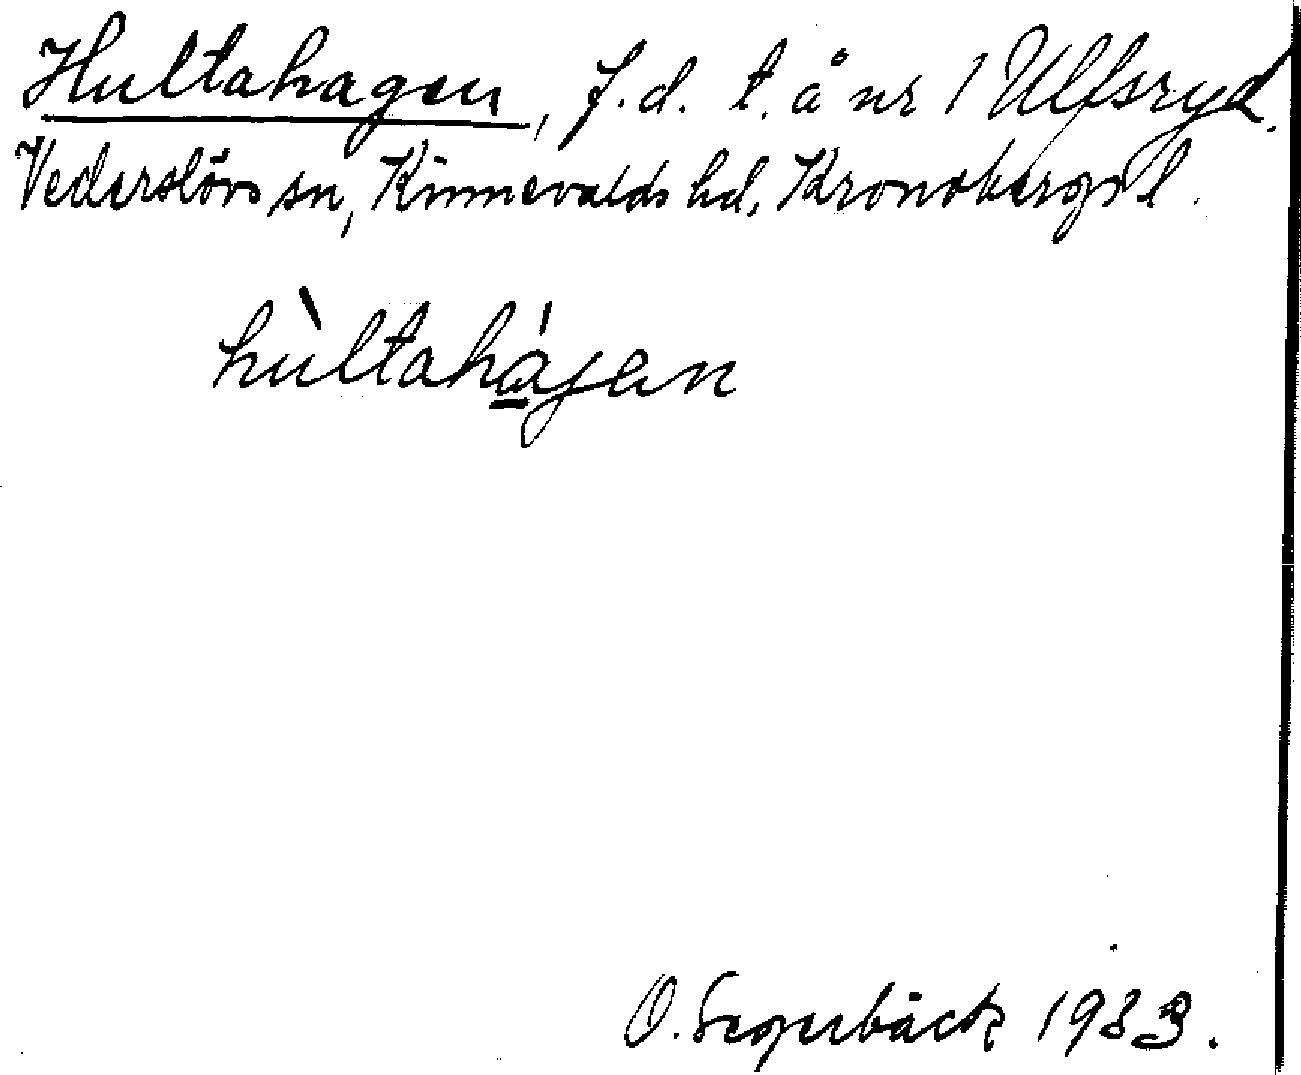 Hultahagen, f.d. t. å nr 1 Ulfsryd.
Vederslövs sn, Kinnevalds hd, Kronobergs l.
hùltahágen
O. Segerbäck 1933.